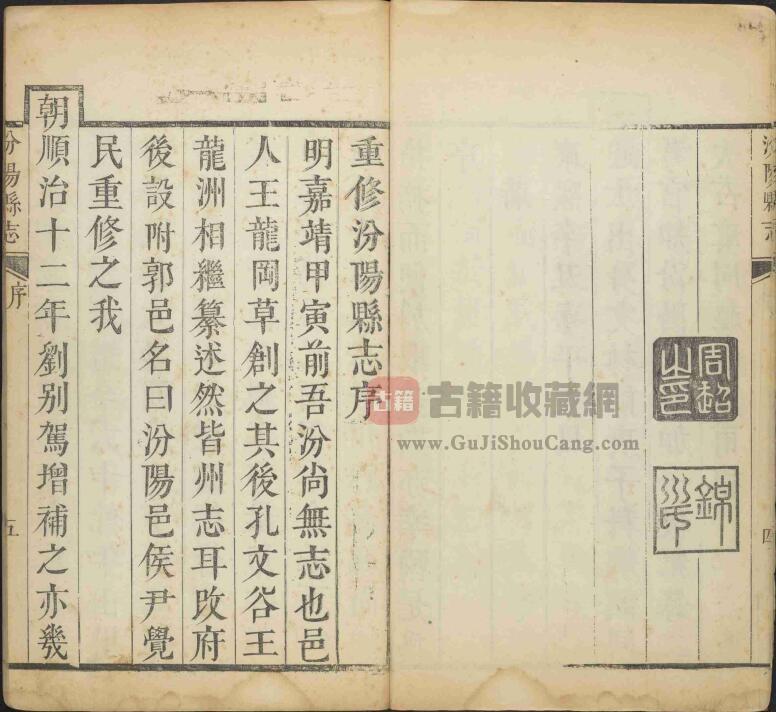 汾陽縣志
四
周超
山印
錦
重修汾陽縣志序
明嘉靖甲寅前吾汾尚無志也邑
人王龍岡草創之其後孔文谷王
龍洲相繼纂述然皆州志耳改府
後設附郭邑名曰汾陽邑侯尹覺
民重修之我
朝順治十二年劉別駕增補之亦幾
汾陽縣志
序
五
古籍
古籍收藏網
www.GuJiShouCang.com